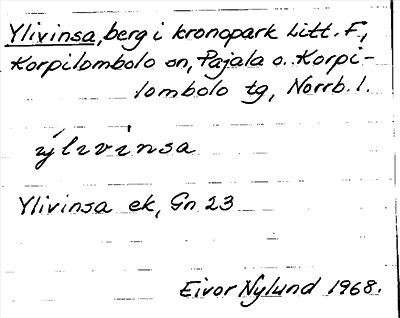 Ylivinsa, berg i kronopark Litt. F.,
Korpilombolo sn, Pajala o. Korpi-
lombolo tg, Norrb. l.
ýlivìnsa
Ylivinsa ek, Gn 23
Eivor Nylund 1968.